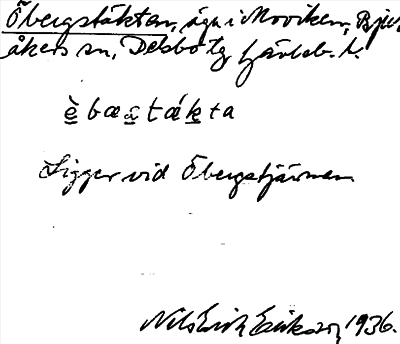 Öbergstäktan, äga i Moviken, Bju-
åkers sn, Delsbo tg Gävleb. l.
è̲bæa̲ táḵta
Ligger vid Öbergstjärnen
Nils Erik Erikson, 1936.